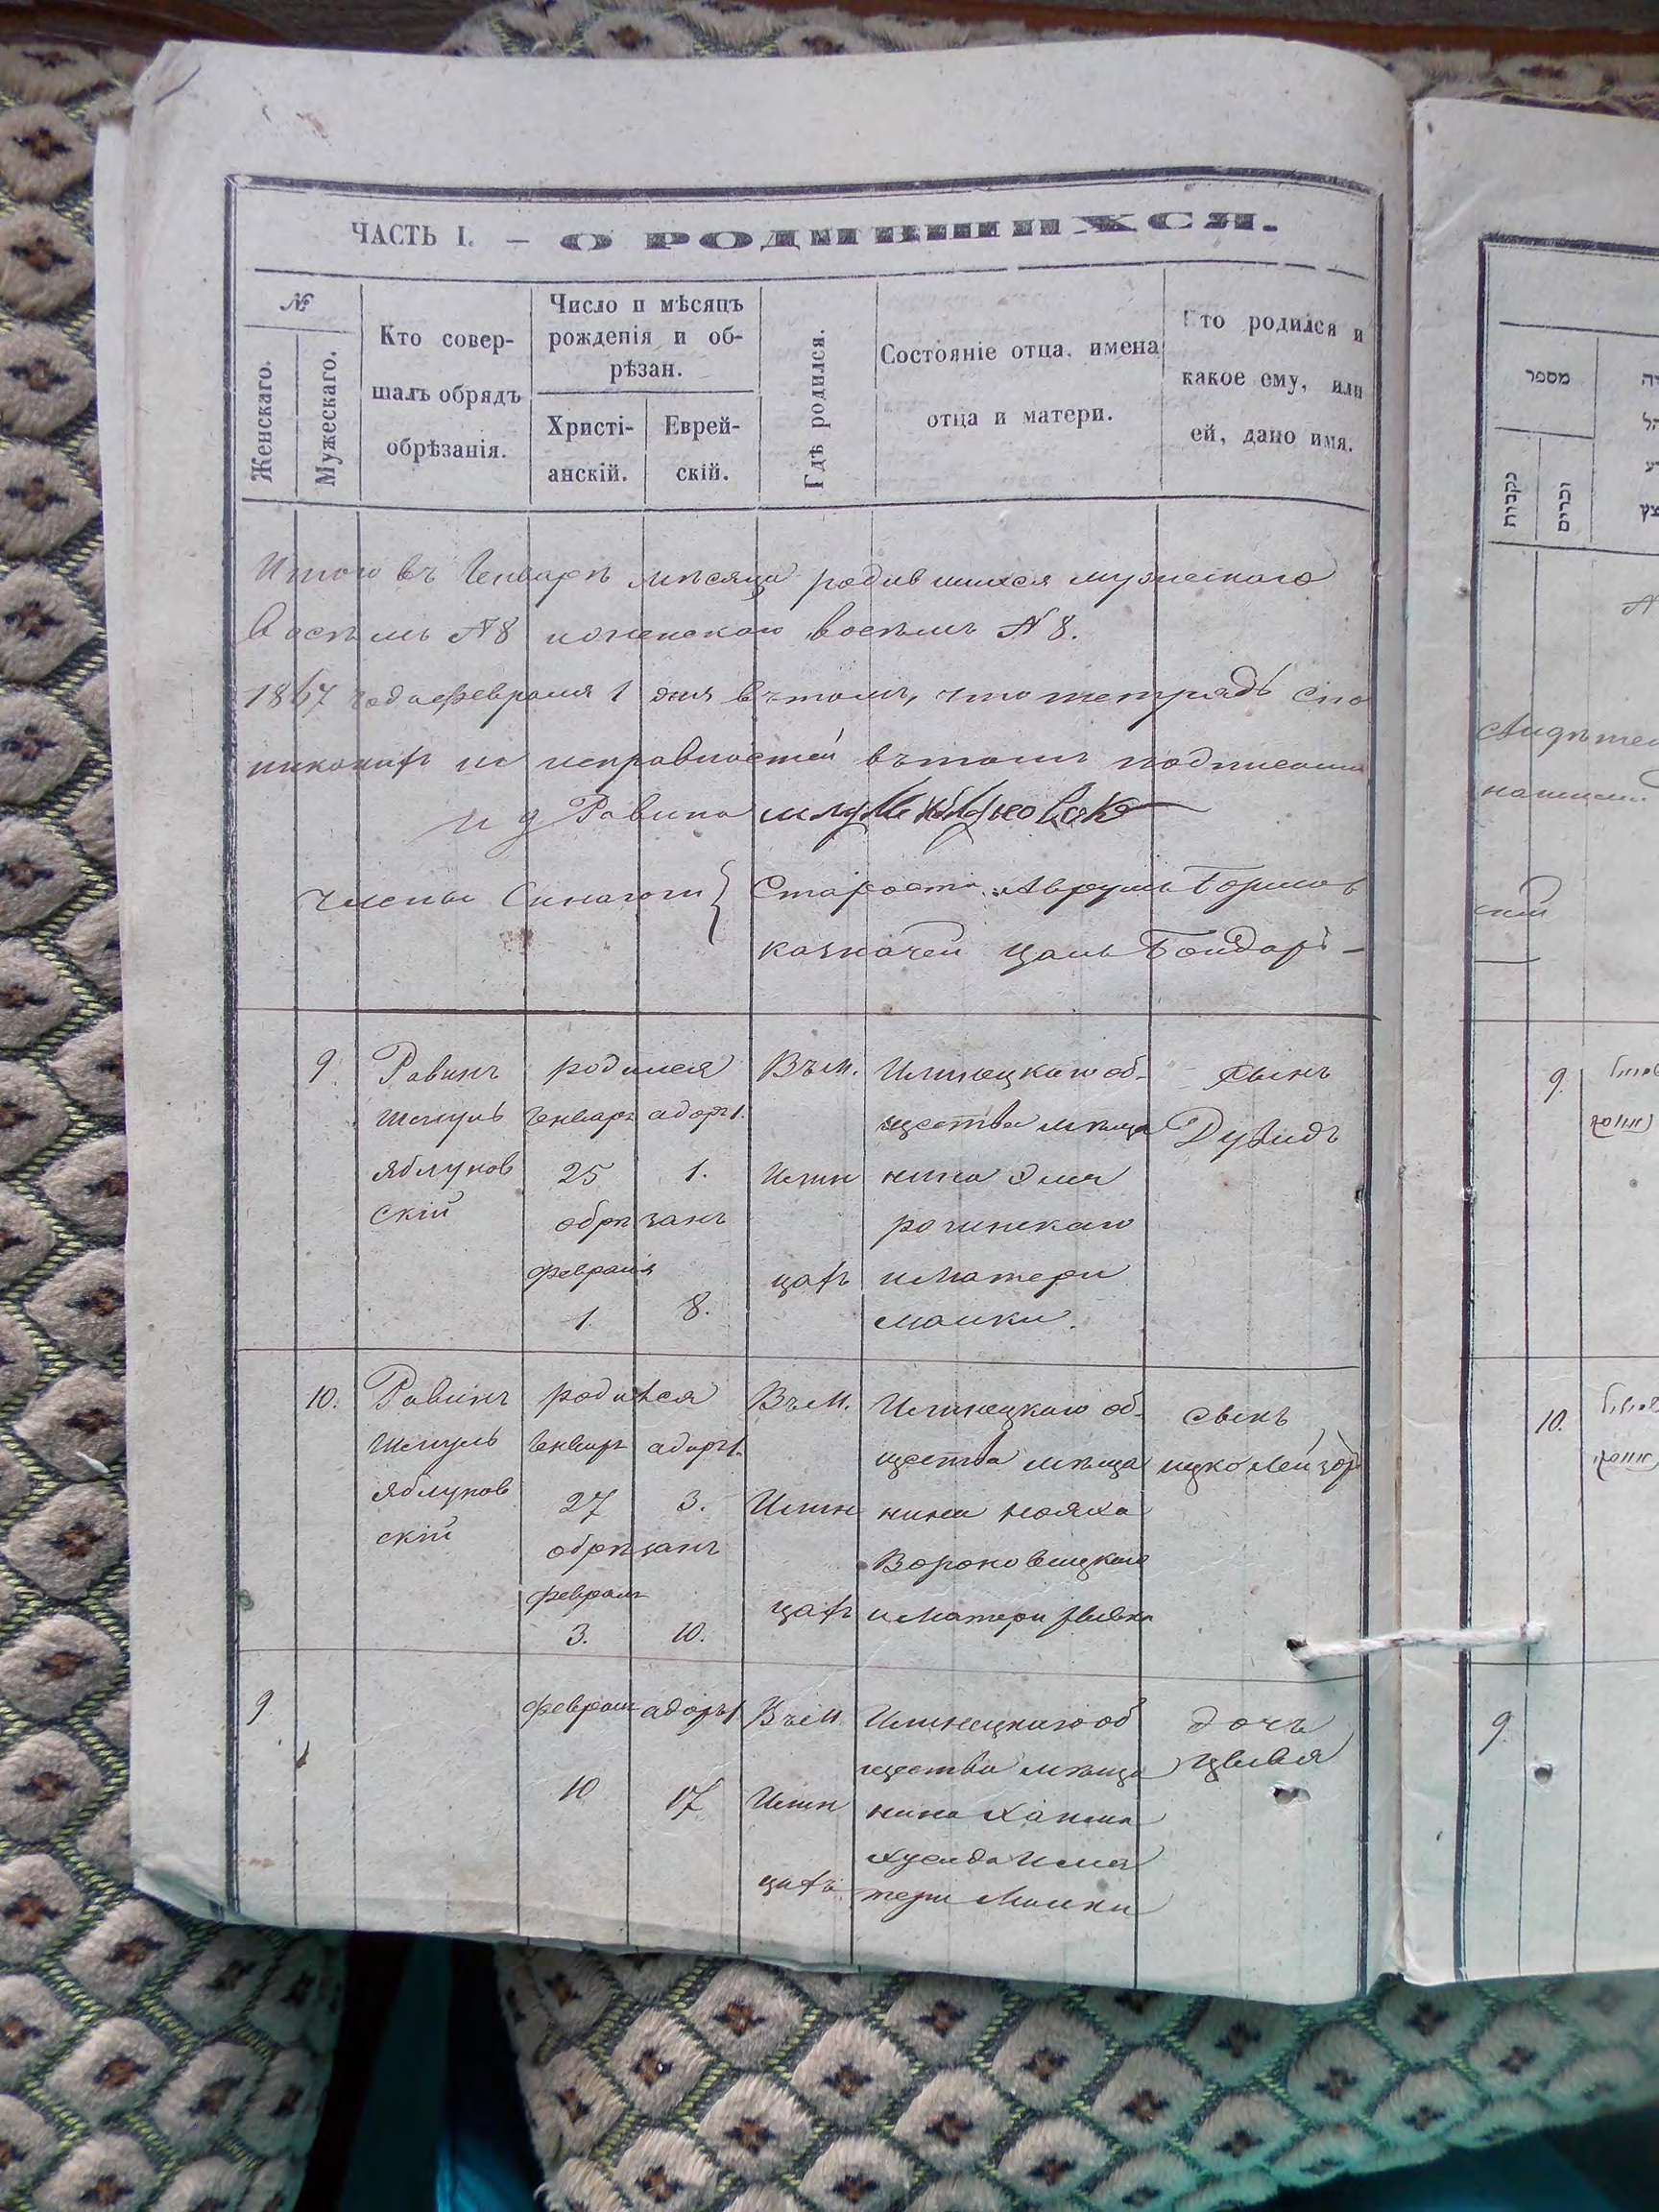 ЧАСТЬ I. — О РОДИВШИХСЯ.
№
Женскаго.
Мужескаго.
Кто совер-
шалъ обрядъ
обрѣзанія.
Число и мѣсяцъ
рожденія и об-
рѣзан.
Христі-
анскій.
Еврей-
скій.
Гдѣ родился.
Состояніе отца, имена
отца и матери.
Кто родился и
какое ему, или
ей, дано имя.
Итого въ Генварѣ мѣсяца родившихся мужескаго
восѣмъ №8 и женскаго восѣмъ №8.
1867 года февраля 1 дня въ томъ, что тетрадь
исправностей въ томъ
и д Равина
Члены Синагоги } Староста Аврумъ
казначей Цаль Бондарь —
9. Равинъ
Шмуль
Яблунов
скій
родился
Генваръ адоръ 1.
25 1.
обрѣзанъ
февраля
1. 8.
Въ м.
Илин
цахъ
Илинецкаго об-
щества мѣща
нина Эля
рогинскаго
и матери
малки.
сынъ
Дувидъ
10. Равинъ
Шмуль
Яблунов
скій
родился
Генварь адоръ 1.
27 3.
обрѣзанъ
февраля
3. 10.
Въ м.
Илин
цахъ
Илинецкаго об-
щества мѣща
нина Нояха
Вороновицкаго
и матери Ривки
сынъ
ицко Лейзоръ
9
февраля адоръ 1
10 17
Въ м
Илин
цахъ
Илинецкаго об
щества мѣща
нина Хаима
и ма
тери Малки
дочь
Цывья
מספר
נקבות
זכרים
9.
10.
9.